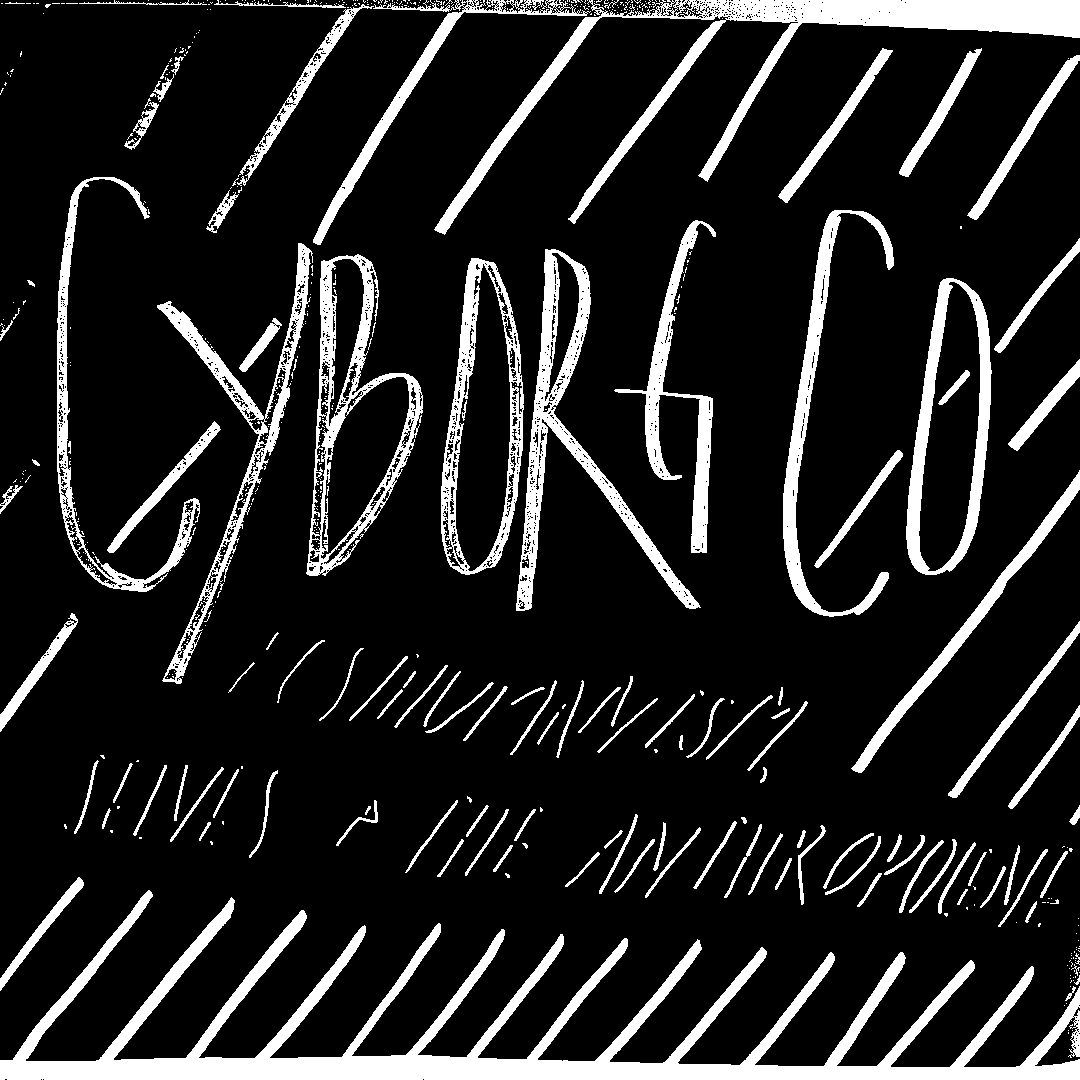 CYBORG CO
POSTHUMANISM,
SELVES & THE ANTHROPOCENE